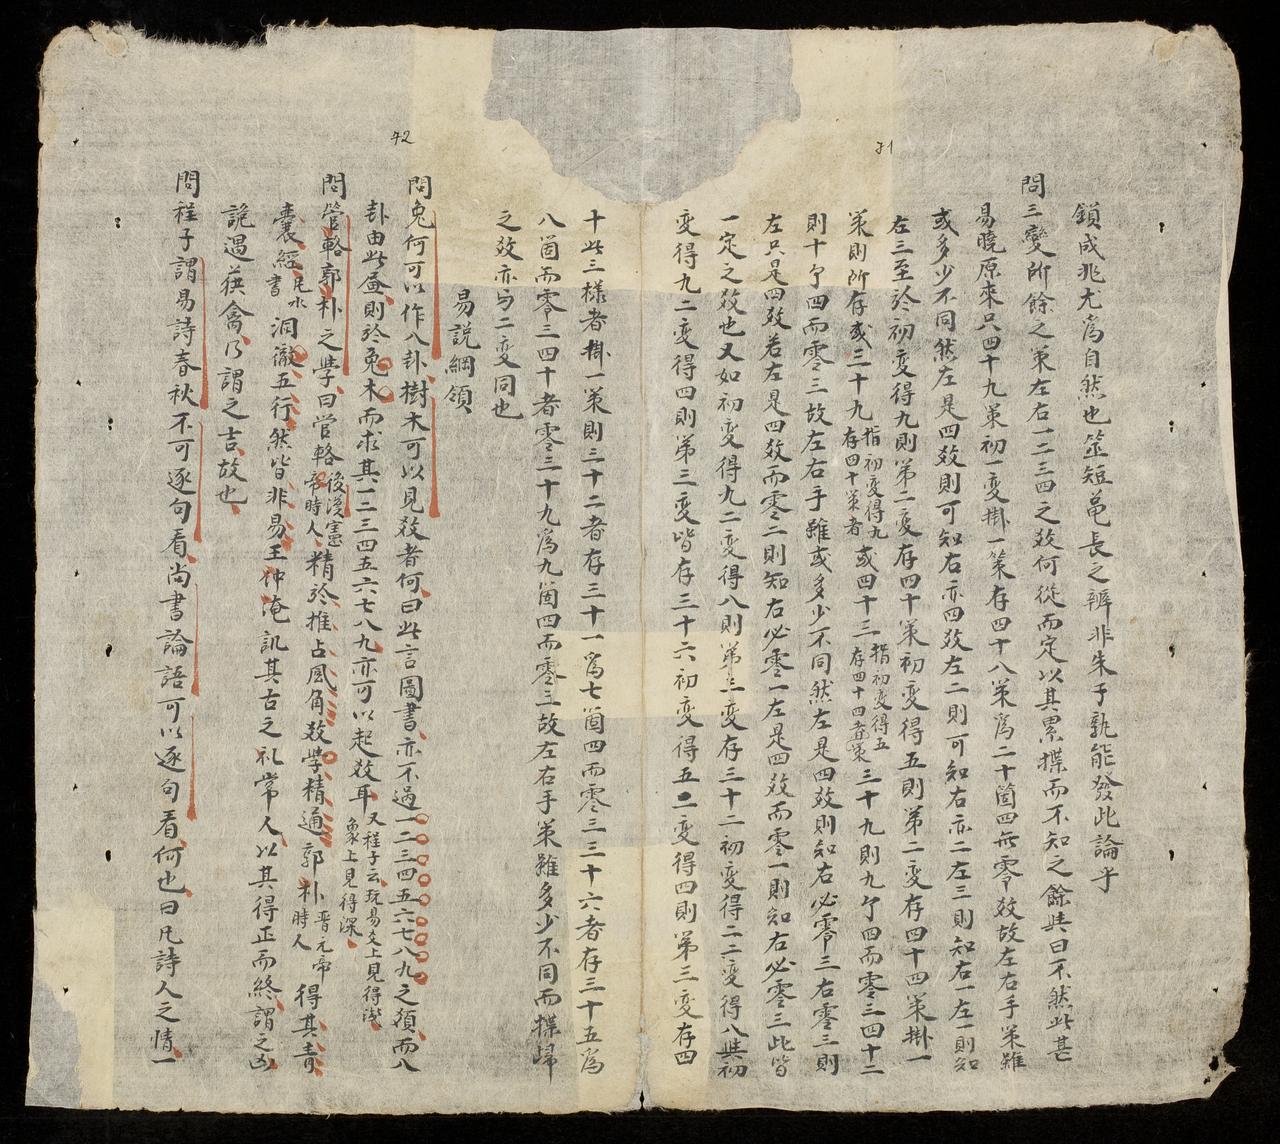 71
鎖成兆尤為自然也筮短龜長之辨非朱子孰能發此論乎
問三變所餘之策左右一二三四之数何從而定以其累揲而不知之餘㢤曰不然此甚
易曉原來只四十九策初一变掛一策存四十八策為二十箇四無零数故左右手策雖
或多少不同然左是四数則可知右亦四数左二則可知右亦二左三則知右一左一則知
右三至於初变得九則第二变存四十策初变得五則第二变存四十四策掛一
策則所存或三十九指初变得九存四十策者或四十三指初变得五存四十四者策三十九則九个四而零三四十三
則十个四而零三故左右手雖或多少不同然左是四数則知右必零三右零三則
左只是四数若左是四数而零二則知右必零一左是四数而零一則知右必零三此皆
一定之数也又如初变得九二变得八則第三变存三十二初变得二二变得八㢤初
变得九二变得四則第三变皆存三十六初变得五二变得四則第三变存四
十此三様者掛一策則三十二者存三十一為七箇四而零三三十六者存三十五為
八箇而零三四十者零三十九為九箇四而零三故左右手策雖多少不同而揲歸
之数亦与二变同也
72
易説綱領
問兔何可以作八卦樹木可以見数者何曰此言圖書亦不過一二三四五六七八九之須而八
卦由此畫則於兔木而求其一二三四五六七八九亦可以起数耳又程子云玩易爻上見得淺象上見得深
問管輅郭朴之學曰管輅後漢憲帝時人精於推占風角数學精通郭朴晋元帝時人得其青
囊經是水書洞徹五行然皆非易王仲淹訊其古之礼常人以其得正而終謂之凶
詭遇获禽乃謂之吉故也
問程子謂易詩春秋不可逐句看尚書論語可以逐句看何也曰凡詩人之情一